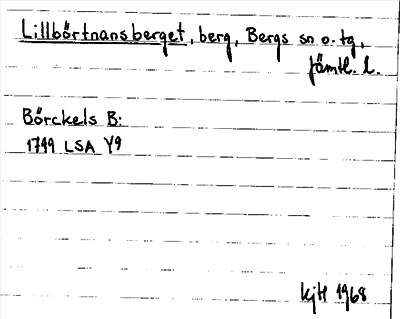 Lillbörtnansberget, berg, Bergs sn o. tg,
Jämtl. l.
Börckels B:
1749 LSA Y9
KjH 1968